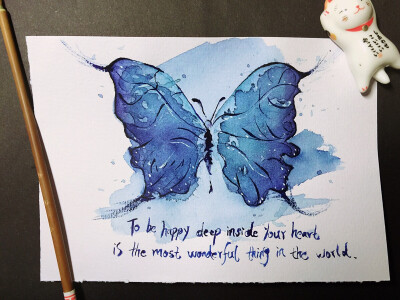 To be happy deep inside your heart
is the most wonderful thing in the world.